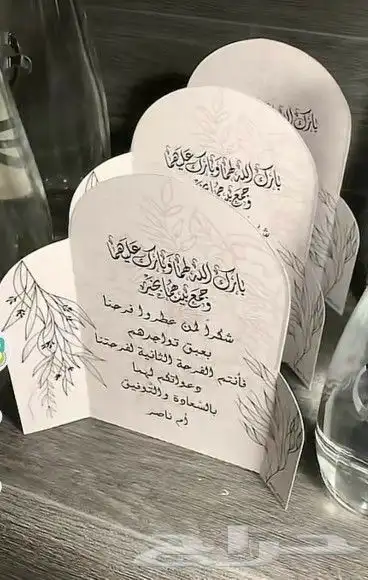 بارك الله لهما وبارك عليهما
وجمع بينهما في خير
شكراً لمن عطروا فرحنا
بعبق تواجدهم
فأنتم الفرحة الثانية لفرحتنا
دعواتكم لهما
بالسعادة والتوفيق
أم ناصر
بارك الله لهما وبارك عليهما
وجمع بينهما في خير
بارك الله
حراج